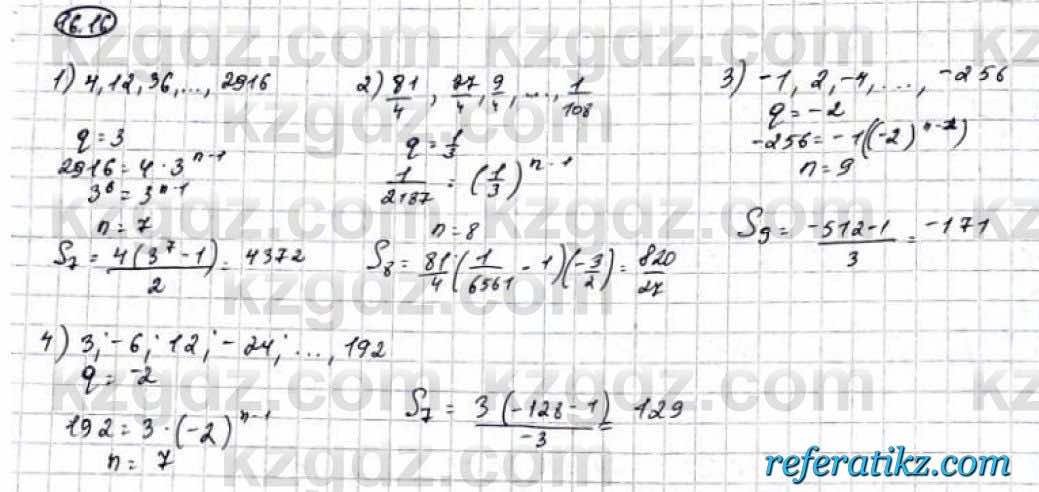 16.16
1) 4, 12, 36, ..., 2916
q = 3
2916 = 4 · 3^(n-1)
3^6 = 3^(n-1)
n = 7
S_7 = 4(3^7 - 1)/2 = 4372
2) 81/4, 27/4, 9/4, ..., 1/108
q = 1/3
1/2187 = (1/3)^(n-1)
n = 8
S_8 = 81/4 (1/6561 - 1)(-3/2) = 820/27
3) -1, 2, -4, ..., -256
q = -2
-256 = -1((-2)^(n-1))
n = 9
S_9 = (-512-1)/3 = -171
4) 3; -6; 12; -24; ..., 192
q = -2
192 = 3 · (-2)^(n-1)
n = 7
S_7 = 3(-128-1)/-3 = 129
kzgdz.com
referatikz.com